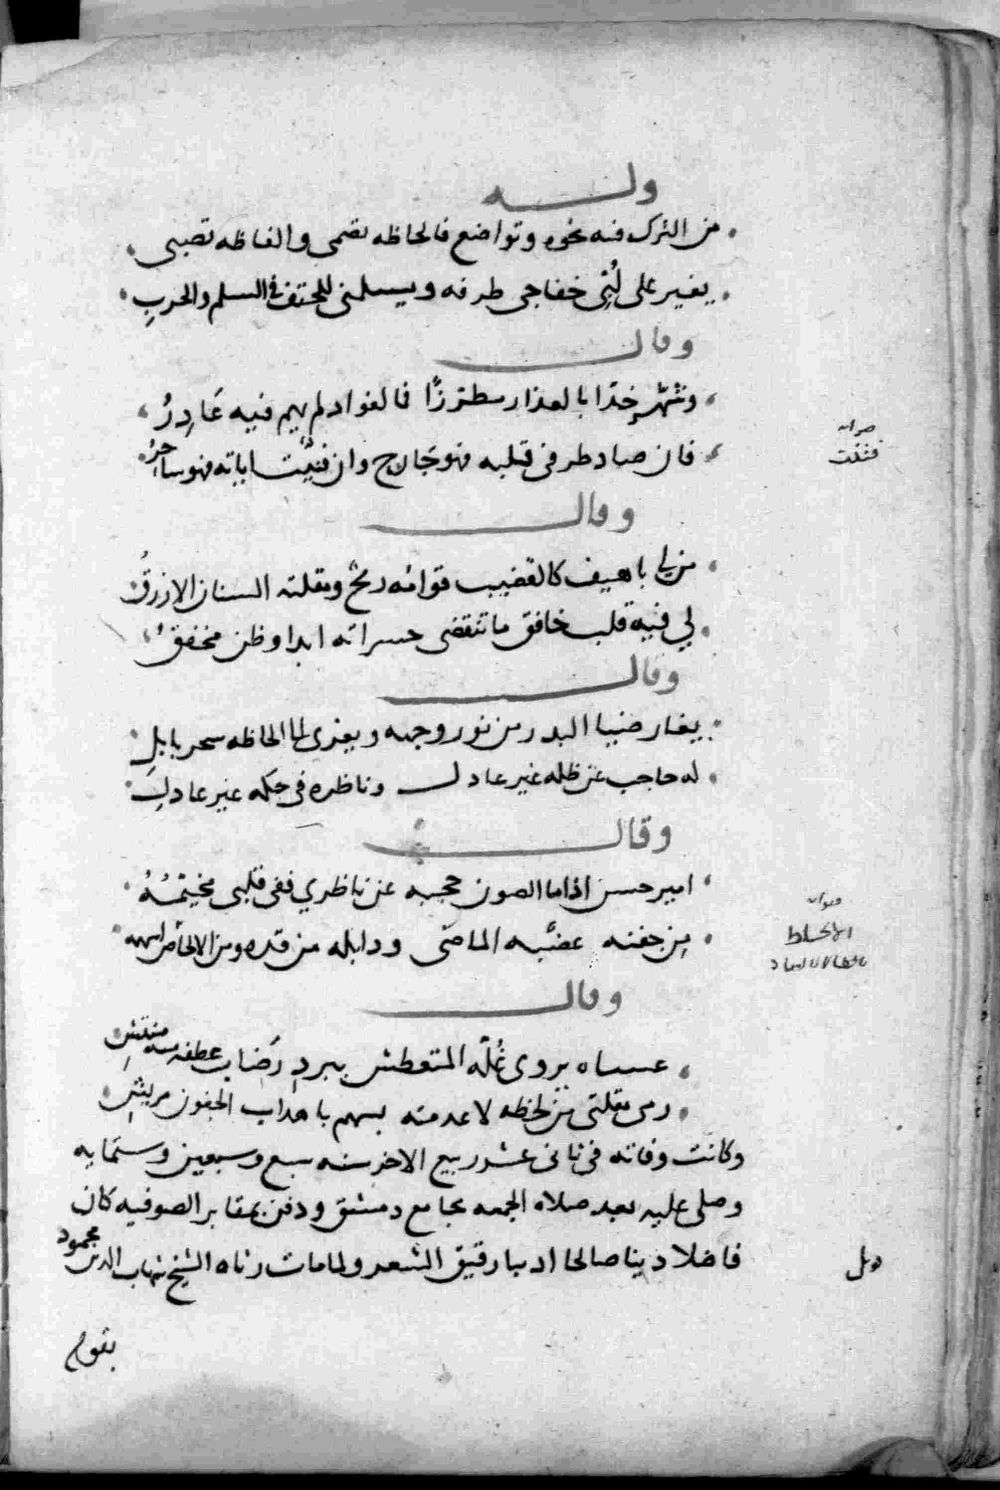 وله
من الترك فيه نخوه وتواضع فالحاظه تصمى والفاظه تصبى
يغير على لبي خفاجي طرفه ويسلمنى للحتف فى السلم والحرب
وقال
خدا بالعذار مطرزا فالفواد لم يهم فيه عاذر
فان صاد طرفى قلبه فهو جارح وان فتنت اياته فهو ساحر
صوابه
فتنت
وقال
من لي باهيف كالقضيب قوامه رمح ومقلته السنان الازرق
لي فيه قلب خافق ما تنقضى حسراته ابدا وظن مخفق
وقال
يغار ضيا البدر من نور وجهه ويعزي لما الحاظه سحر بابل
له حاجب عن ظله غير عادل وناظره فى حكمه غير عادل
وقال
امير حسن اذا ما الصون حجبه عن ناظري ففى قلبي مخيمه
من جفنه عضبه الماضى وذابله من قده ومن الالحاظ اسهمه
صوابه
وقال
عساه يروى غلة المتعطش ببرد رضاب
رمى مقلتى من لحظه لا عدمته بسهم باهداب الجفون مريش
وكانت وفاته فى ثانى عشر ربيع الاخر سنه سبع وسبعين وستمايه
وصلى عليه بعد صلاه الجمعه بجامع دمشق ودفن بمقابر الصوفيه كان
فاضلا دينا صالحا اديبا رقيق الشعر ولما مات رثاه الشيخ شهاب الدين محمود
بقوله